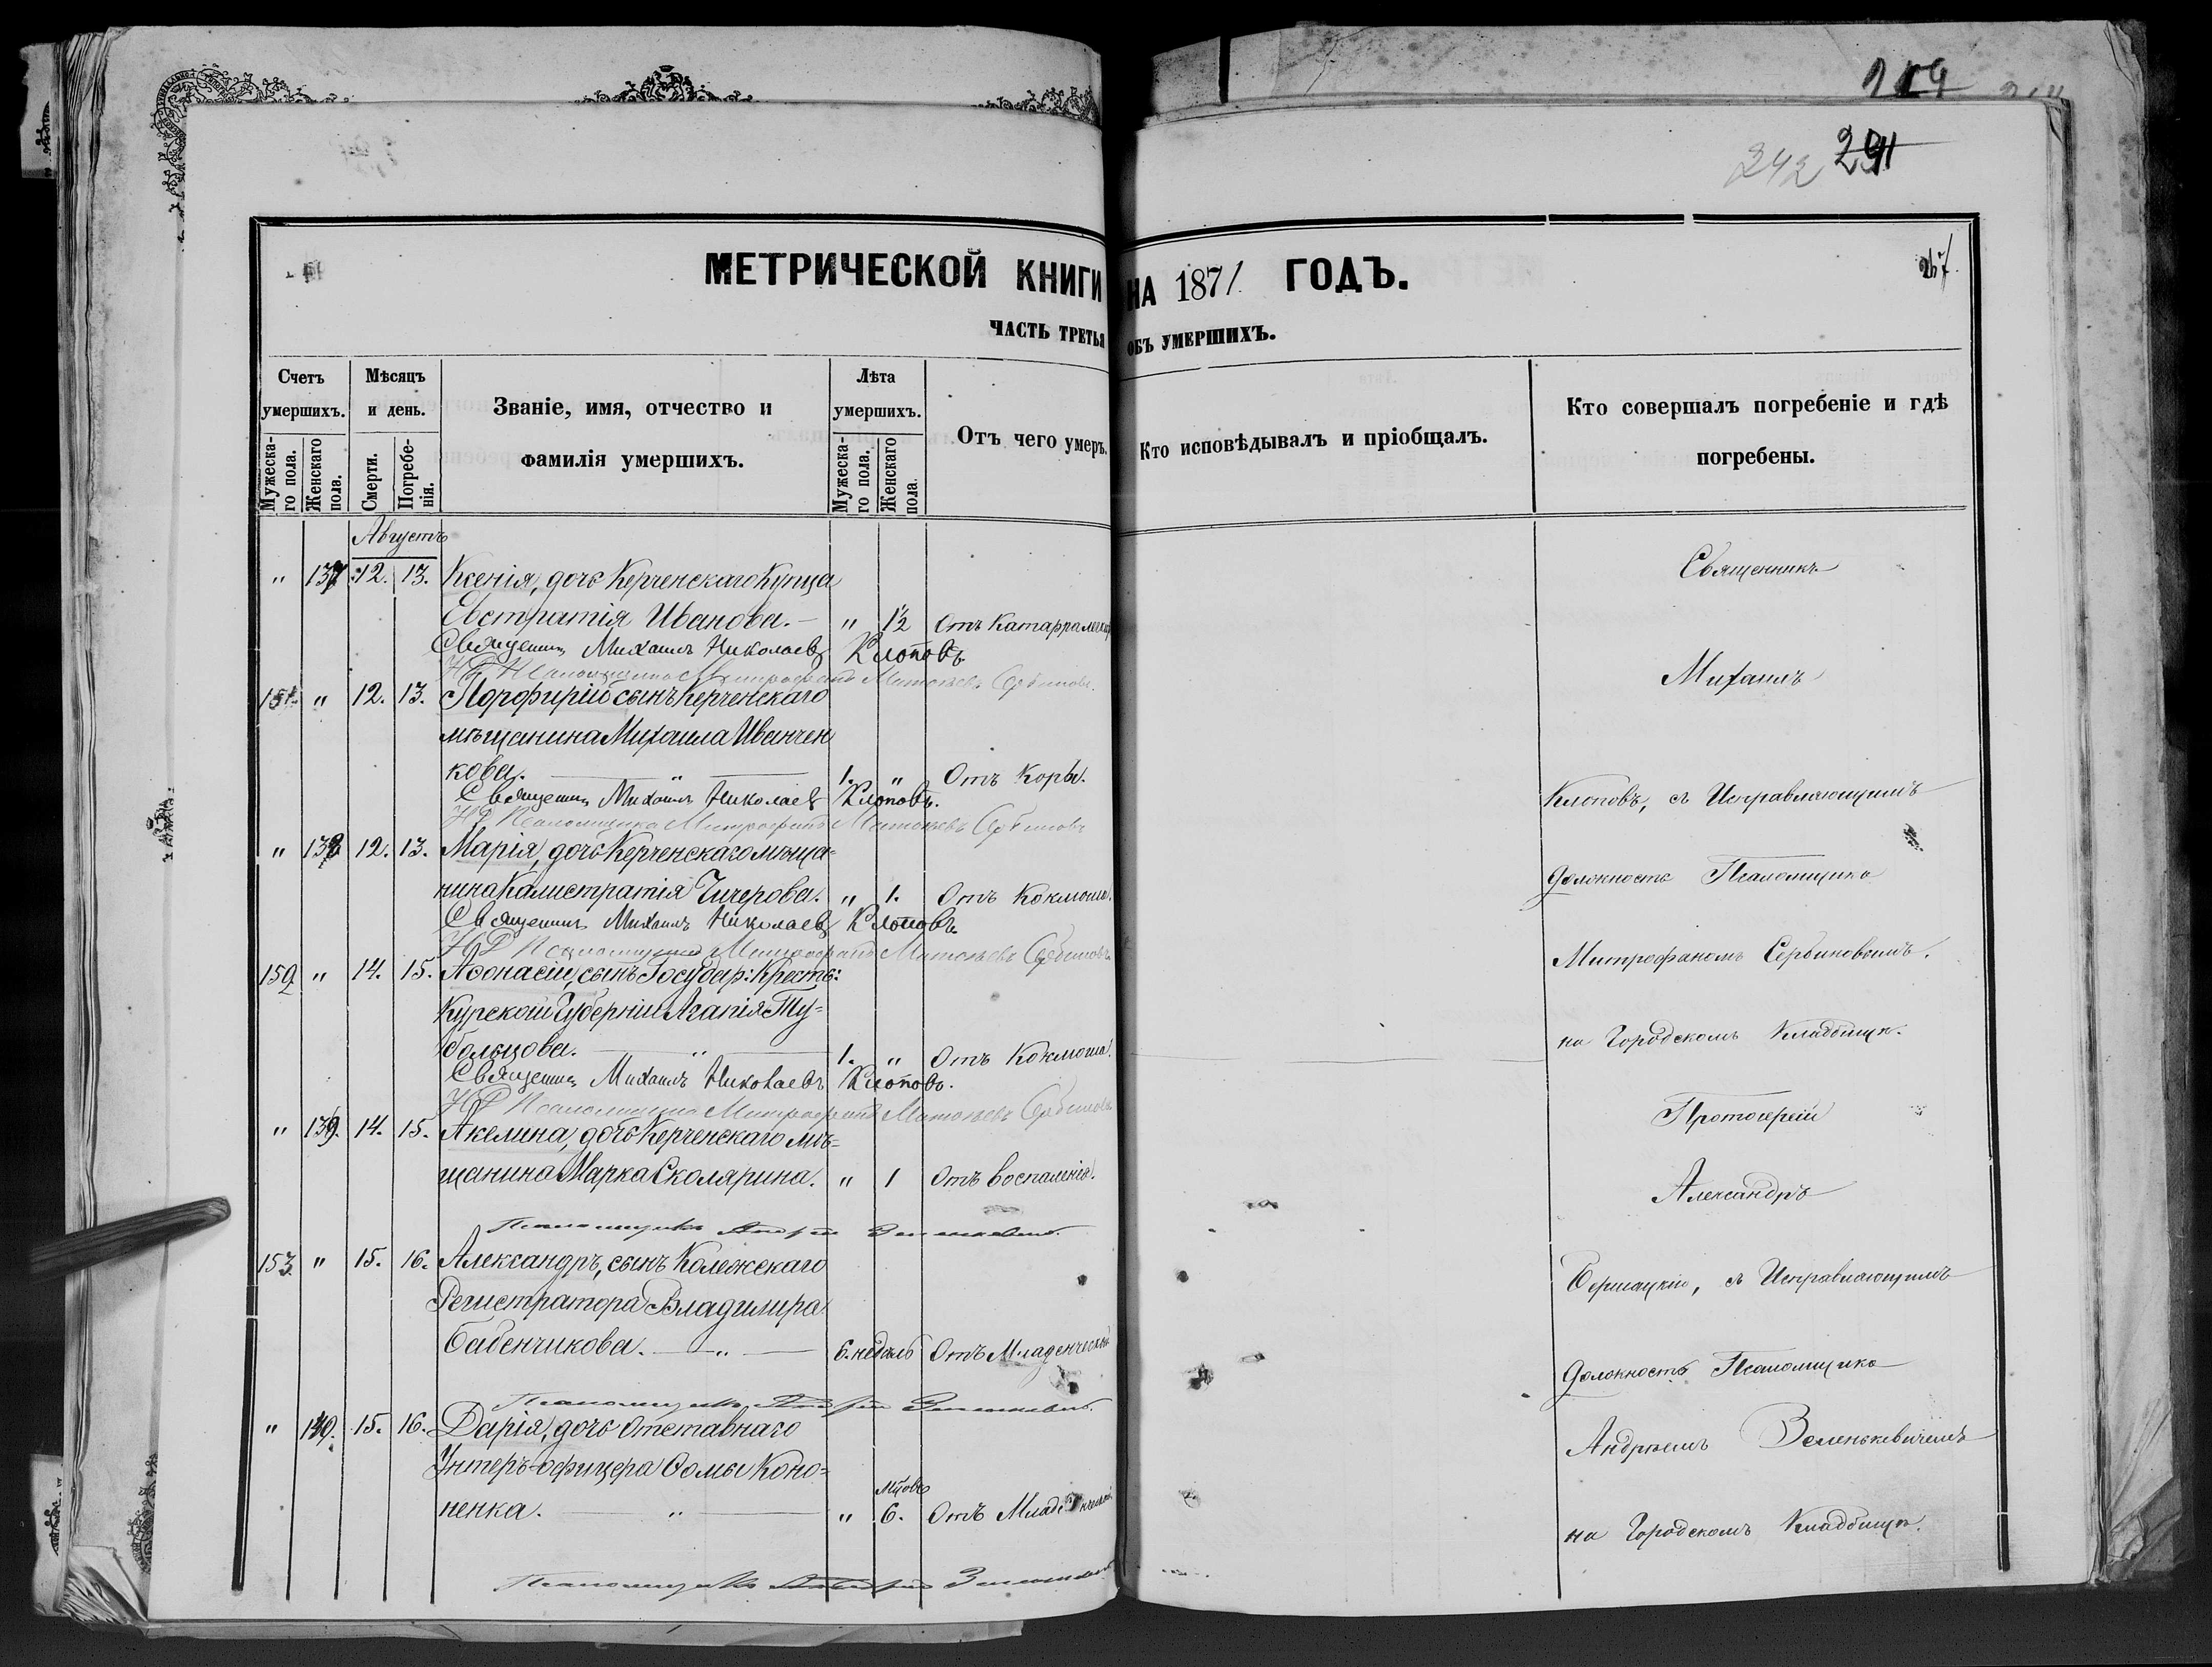 119
242 291
МЕТРИЧЕСКОЙ КНИГИ НА 1871 ГОДЪ.
267.
ЧАСТЬ ТРЕТЬЯ ОБЪ УМЕРШИХЪ.
Счетъ умершихъ.
Мужескаго пола.
Женскаго пола.
Мѣсяцъ и день.
Смерти.
Погребенія.
Званіе, имя, отчество и
фамилія умершихъ.
Лѣта умершихъ.
Мужескаго пола.
Женскаго пола.
Отъ чего умеръ.
Кто исповѣдывалъ и пріобщалъ.
Кто совершалъ погребеніе и гдѣ
погребены.
Августъ
" 137 12. 13. Ксенія, дочь Керченскаго Купца
Евстратія Иванова. - " 1½ Отъ Катарральной
Священникъ Михаилъ Николаевъ Клоповъ.
Псаломщика Митрофанъ Матвѣевъ Сербиновъ.
151. " 12. 13. Порфирій сынъ Керченскаго
мѣщанина Михаила Иванчен
кова. " 1. " Отъ Кори.
Священникъ Михаилъ Николаевъ Клоповъ.
Псаломщика Митрофанъ Матвѣевъ Сербиновъ
" 138 12. 13. Марія, дочь Керченскаго мѣща=
нина Калистратія Чичерова. " 1. Отъ Коклюша.
Священникъ Михаилъ Николаевъ Клоповъ.
Псаломщика Митрофанъ Матвѣевъ Сербиновъ
152 " 14. 15. Аѳонасій, сынъ Государ: Кресть:
Курской Губерніи Агапія Ту=
больцова. " 1. " Отъ Коклюша.
Священникъ Михаилъ Николаевъ Клоповъ.
Псаломщика Митрофанъ Матвѣевъ Сербиновъ
" 139. 14. 15. Акелина, дочь Керченскаго мѣ=
щанина Марка Сколярина. " 1 Отъ воспаленія.
Псаломщикъ Андрей Зеленкевичъ.
153 " 15. 16. Александръ, сынъ Колежскаго
Регистратора Владимира
Бабенчикова. " 6. недѣль Отъ Младенческой
Псаломщикъ Андрей Зеленкевичъ.
" 140. 15. 16. Дарія, дочь Отставнаго
Унтеръ-офицера Ѳомы Коно=
ненка. " " 6. мцовъ Отъ Младенческой
Псаломщикъ Андрей Зеленкевичъ
Священникъ
Михаилъ
Клоповъ, съ Исправляющимъ
должность Псаломщика
Митрофаномъ Сербиновымъ.
на Городскомъ Кладбищѣ.
Протоіерей
Александръ
съ Исправляющимъ
должность Псаломщика
Андреемъ Зеленькевичемъ
на Городскомъ Кладбищѣ.